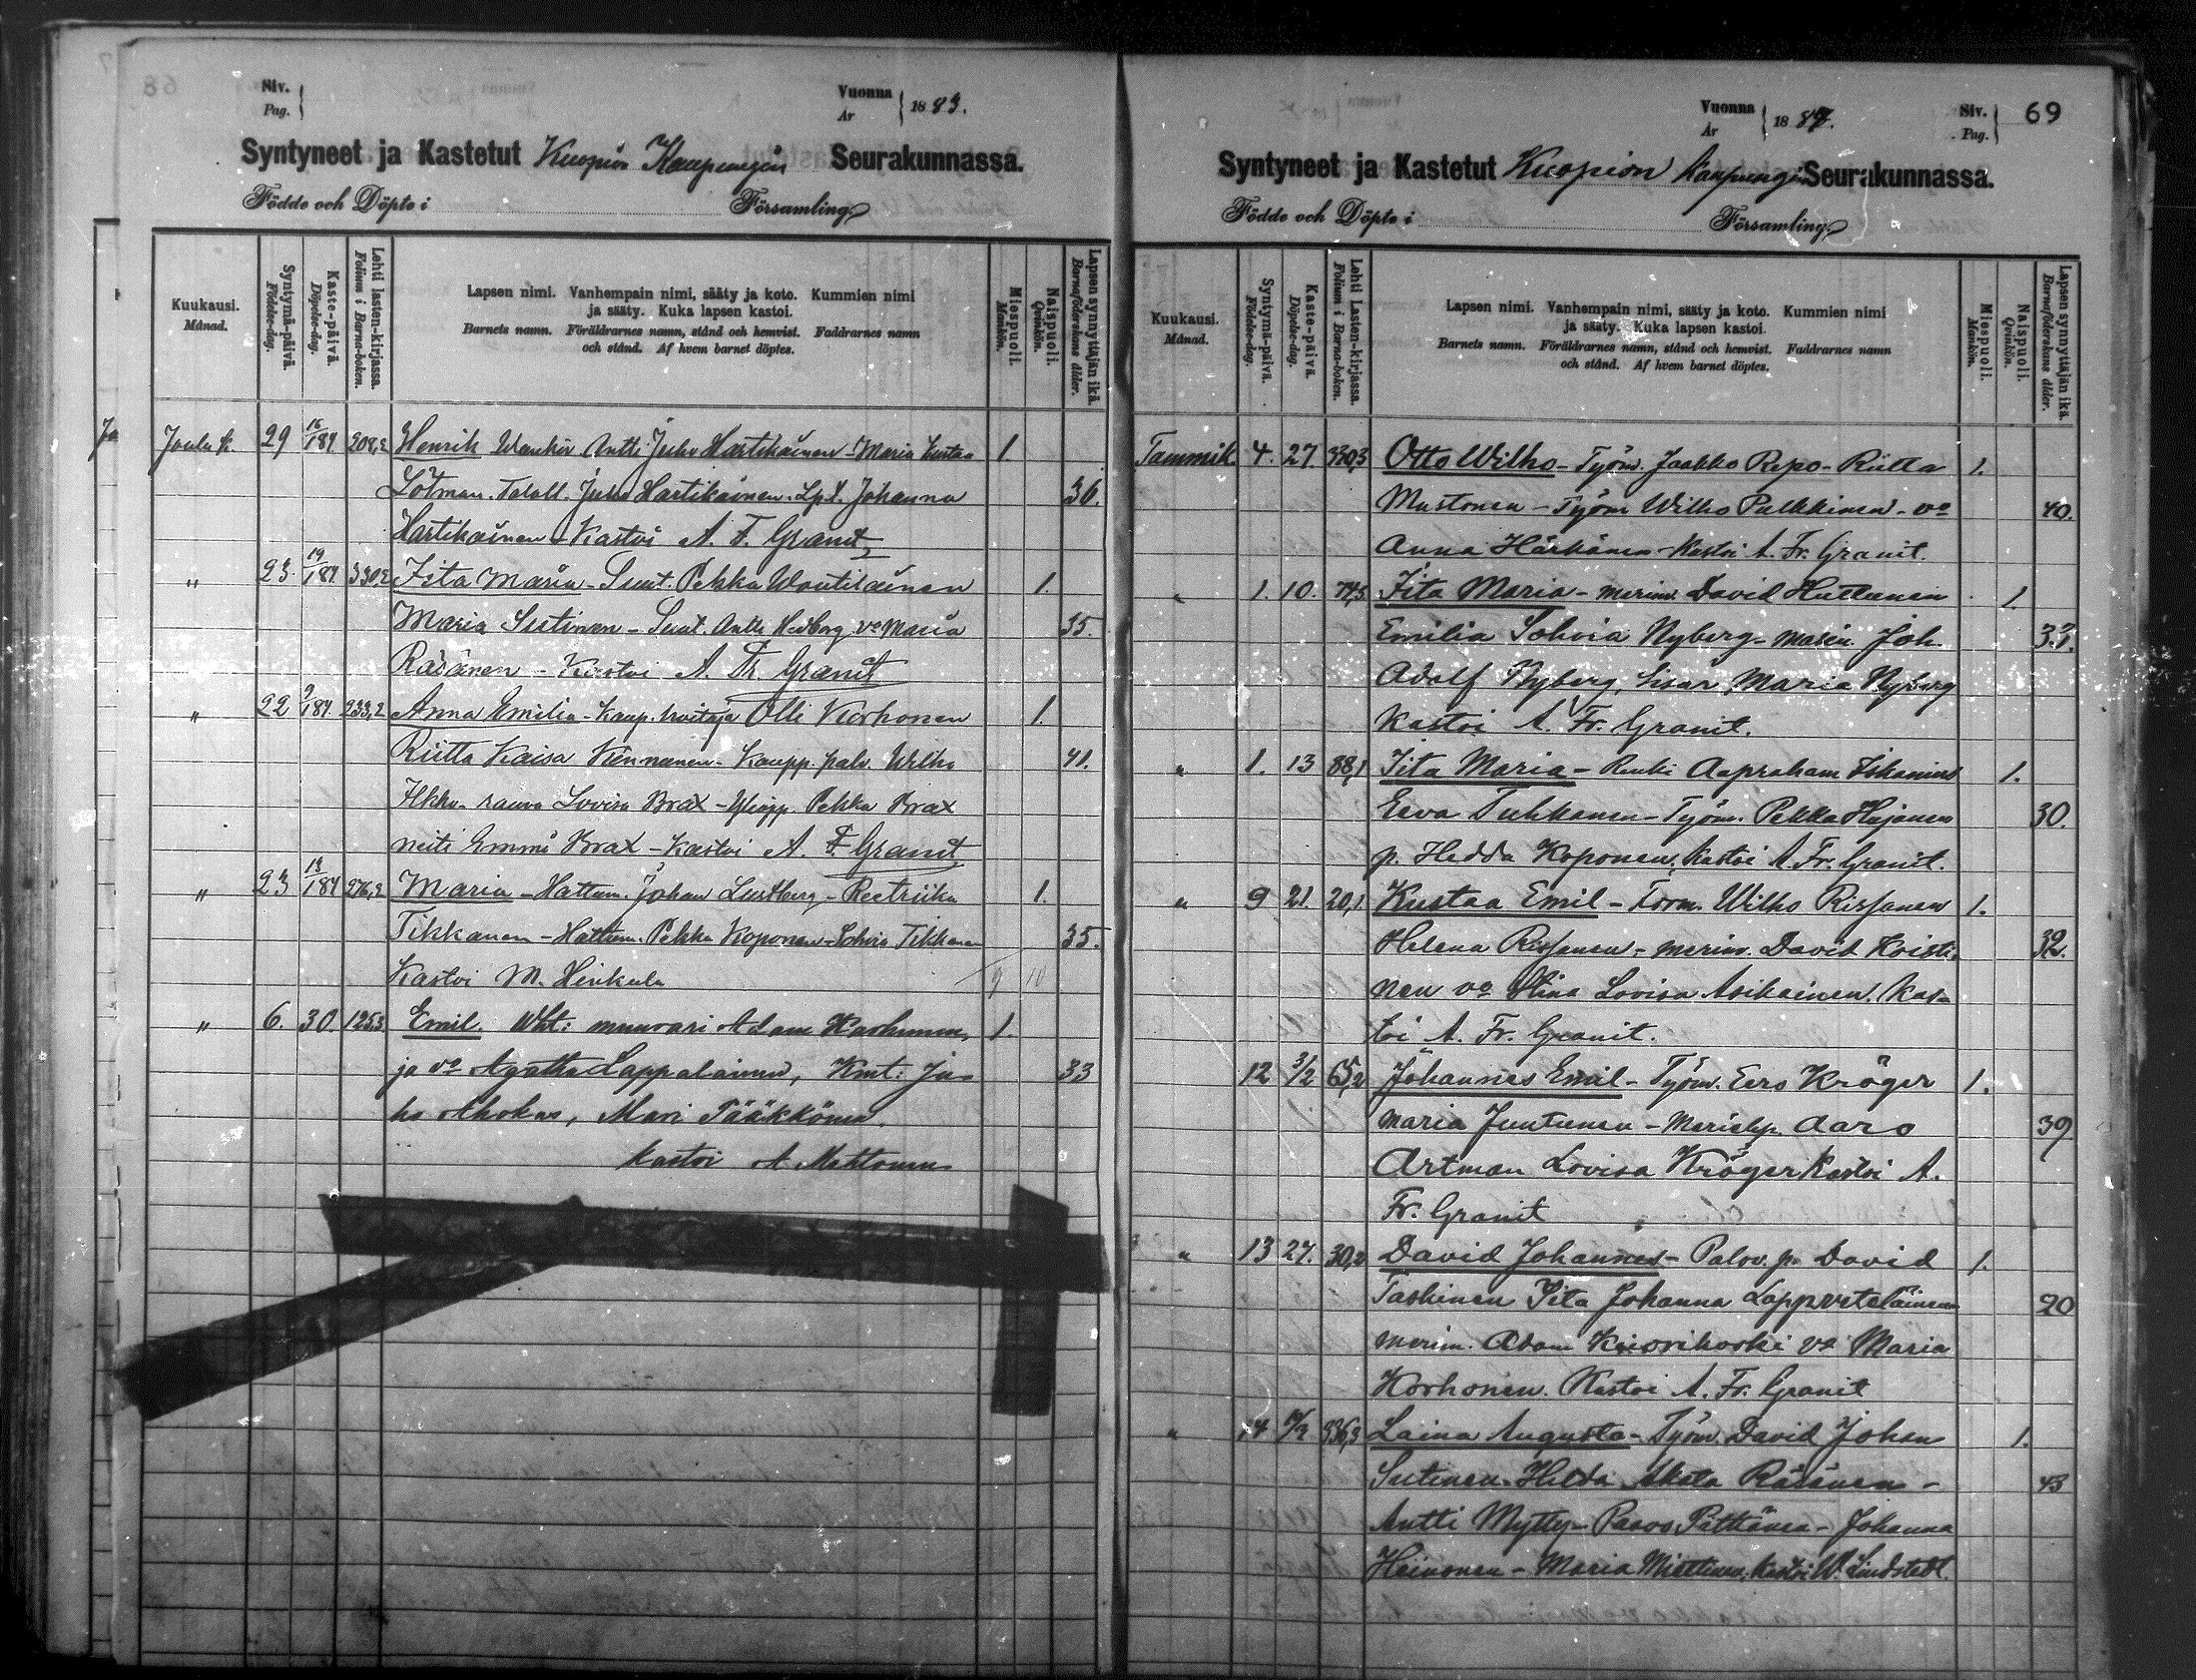 Siv. Pag. Vuonna År 1883.
Syntyneet ja Kastetut Kuopion Kaupungin Seurakunnassa.
Födde och Döpte i Församling
Kuukausi. Månad.
Syntymä-päivä. Födelse-dag.
Kaste-päivä. Döpelse-dag.
Lehti lasten-kirjassa. Folium i Barna-boken.
Lapsen nimi. Vanhempain nimi, sääty ja koto. Kummien nimi
ja sääty. Kuka lapsen kastoi.
Barnets namn. Föräldrarnes namn, stånd och hemvist. Faddrarnes namn
och stånd. Af hvem barnet döptes.
Miespuoli. Mankön.
Naispuoli. Qvinkön.
Lapsen synnyttäjän ikä. Barnaföderskans ålder.
Jouluk. 29 16/1 84 208,2 Henrik Antti Juho Hartikainen - Maria Kustaa 1
Lötman. Juho Hartikainen. Johanna 36.
Hartikainen - Kastoi A. F. Granit
" 23. 19/1 84. 330,2 Iita Maria - Suut. Pekka Woutilainen 1.
Maria Sutinen - Suut. Antti Hedborg vo Maria 35.
Räsänen - Kastoi A. Fr. Granit
" 22 9/1 84. 233,2 Anna Emilia - Kaup. hoitaja Olli Korhonen 1.
Riitta Kaisa Kinnunen - Kaupp. palv. Wilho 41.
rouva Lovisa Brax - Pekka Brax
neiti Emmi Brax - Kastoi A. F. Granit
" 23 13/1 84 276,2 Maria - Hattum. Johan Lustberg - Reetriika 1.
Tikkanen - Hattum. Pekka Koponen - Sohvia Tikkanen 35.
Kastoi M. Hinkula
" 6. 30 125,3 Emil. muurari Adam Karhunen, 1.
ja vo Agatha Lappalainen, Kmt: Ju- 33
ho Ahokas, Mari Pääkkönen.
Kastoi A Mahlonen
Vuonna År 1884. Siv. Pag. 69
Syntyneet ja Kastetut Kuopion Kaupungin Seurakunnassa.
Födde och Döpte i Församling
Kuukausi. Månad.
Syntymä-päivä. Födelse-dag.
Kaste-päivä. Döpelse-dag.
Lehti Lasten-kirjassa. Folium i Barna-boken.
Lapsen nimi. Vanhempain nimi, sääty ja koto. Kummien nimi
ja sääty. Kuka lapsen kastoi.
Barnets namn. Föräldrarnes namn, stånd och hemvist. Faddrarnes namn
och stånd. Af hvem barnet döptes.
Miespuoli. Mankön.
Naispuoli. Qvinkön.
Lapsen synnyttäjän ikä. Barnaföderskans ålder.
Tammik. 4. 27. 330,3 Otto Wilho - Työm. Jaakko Repo - Riitta 1.
Mustonen - Työm Wilho Pulkkinen - vo 40.
Anna Härkönen - Kastoi A. Fr. Granit.
" 1. 10. 74,3 Iita Maria - merim. David Huttunen 1.
Emilia Sohvia Nyberg - Joh. 33.
Adolf Nyberg, Maria Nyberg
Kastoi A. Fr. Granit.
" 1. 13 88,1 Iita Maria - Renki Aapraham Iskanius 1.
Eeva Tuhkanen - Työm. Pekka Hujanen 30.
p. Hedda Koponen, Kastoi A. Fr. Granit.
" 9 21. 20,1. Kustaa Emil - Wilho Rissanen 1.
Helena Rissanen - merim. David Koisti- 32.
nen vo Stina Lovisa Asikainen. Kas-
toi A. Fr. Granit.
12 3/2 65,2 Johannes Emil - Työm. Eero Kröger 1.
Maria Juntunen - Aaro 39
Artman Lovisa Kröger Kastoi A.
Fr. Granit
" 13 27. 30,2 David Johannes - Palov. p. David 1.
Taskinen Iita Johanna Lappveteläinen 20
merim. Adam vo Maria
Korhonen. Kastoi A. Fr. Granit
" 14 336,3 Laina Augusta - Työm. David Johan 1.
Sutinen. Helda Räsänen - 43
Antti Mytty - Paavo Pittänen - Johanna
Heinonen - Maria Miettinen, Kastoi W. Lindstedt.